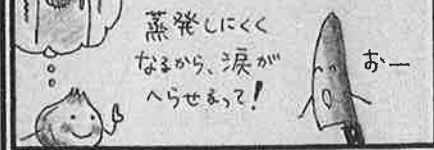 蒸発しにくく
なるから、涙が
へらせるって!
おー